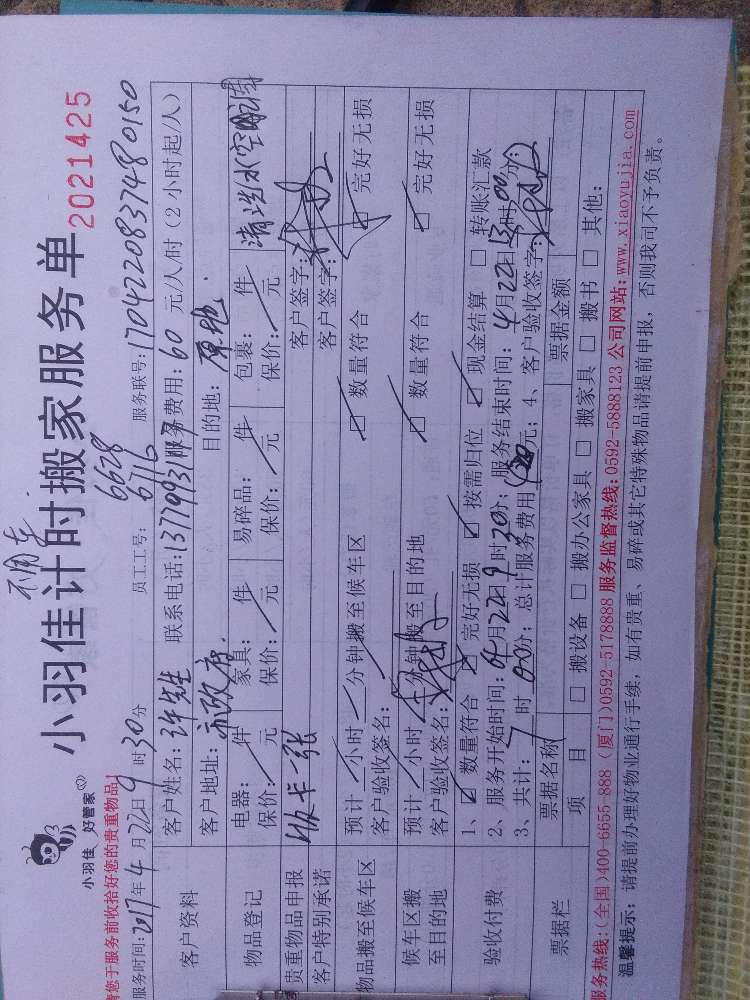 小羽佳 好管家
小羽佳计时搬家服务单
2021425
请您于服务前收拾好您的贵重物品!
6628
服务时间:2017年4月22日9时30分 员工工号:6716 服务联号:1704220837480150
客户资料
客户姓名:许先生 联系电话:13779931 服务费用:60元/人/时(2小时起/人)
客户地址:市政府 目的地:原地
物品登记
电器: 件 家具: 件 易碎品: 件 包裹: 件
保价: 元 保价: 元 保价: 元 保价: 元
清洗水空调
贵重物品申报 收卡一张 客户签字:
客户特别承诺 客户签字:
物品搬至候车区
预计 小时 分钟搬至候车区 数量符合 完好无损
客户验收签名:
候车区搬至目的地
预计 小时 分钟搬至目的地 数量符合 完好无损
客户验收签名:
验收付费
1、数量符合 完好无损 按需归位 现金结算 转账汇款
2、服务开始时间:04月22日9时30分;服务结束时间:4月22日13时00分;
3、共计:7时00分;总计服务费用 元;4、客户验收签字:
票据栏
票据名称 票据金额
项目 搬设备 搬办公家具 搬家具 搬书 其他:
服务热线:(全国)400-6655-888 (厦门)0592-5178888 服务监督热线:0592-5888123 公司网站:www.xiaoyujia.com
温馨提示:请提前办理好物业通行手续,如有贵重、易碎或其它特殊物品请提前申报,否则我司不予负责。